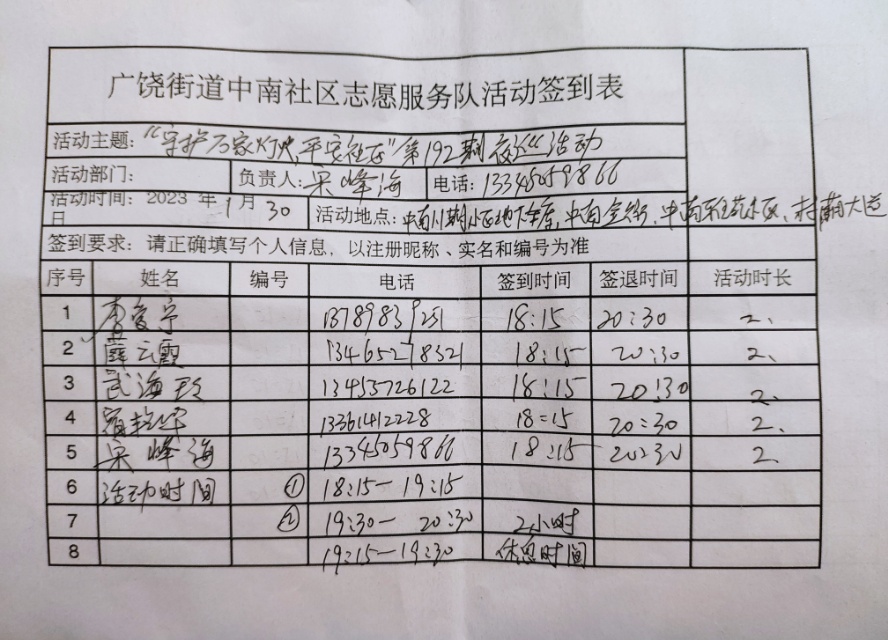 广饶街道中南社区志愿服务队活动签到表
活动主题：“守护万家灯火,平安社区”第192期夜巡“活动
活动部门： 负责人：宋峰海 电话：13345059866
活动时间：2023 年 1 月 30 日 活动地点：中南小区地下车库,中南金街,中南小区、大道
签到要求：请正确填写个人信息，以注册昵称、实名和编号为准
序号 姓名 编号 电话 签到时间 签退时间 活动时长
1 李爱宁 13789839251 18:15 20:30 2.
2 薛云霞 13465278321 18:15 20:30 2.
3 武海珍 13455726122 18:15 20:30 2.
4 13361412228 18=15 20:30 2.
5 宋峰海 13345059866 18:15 20:30 2.
6 活动时间 ① 18:15—19:15
7 ② 19:30— 20:30 2小时
8 19:15—19:30 休息时间